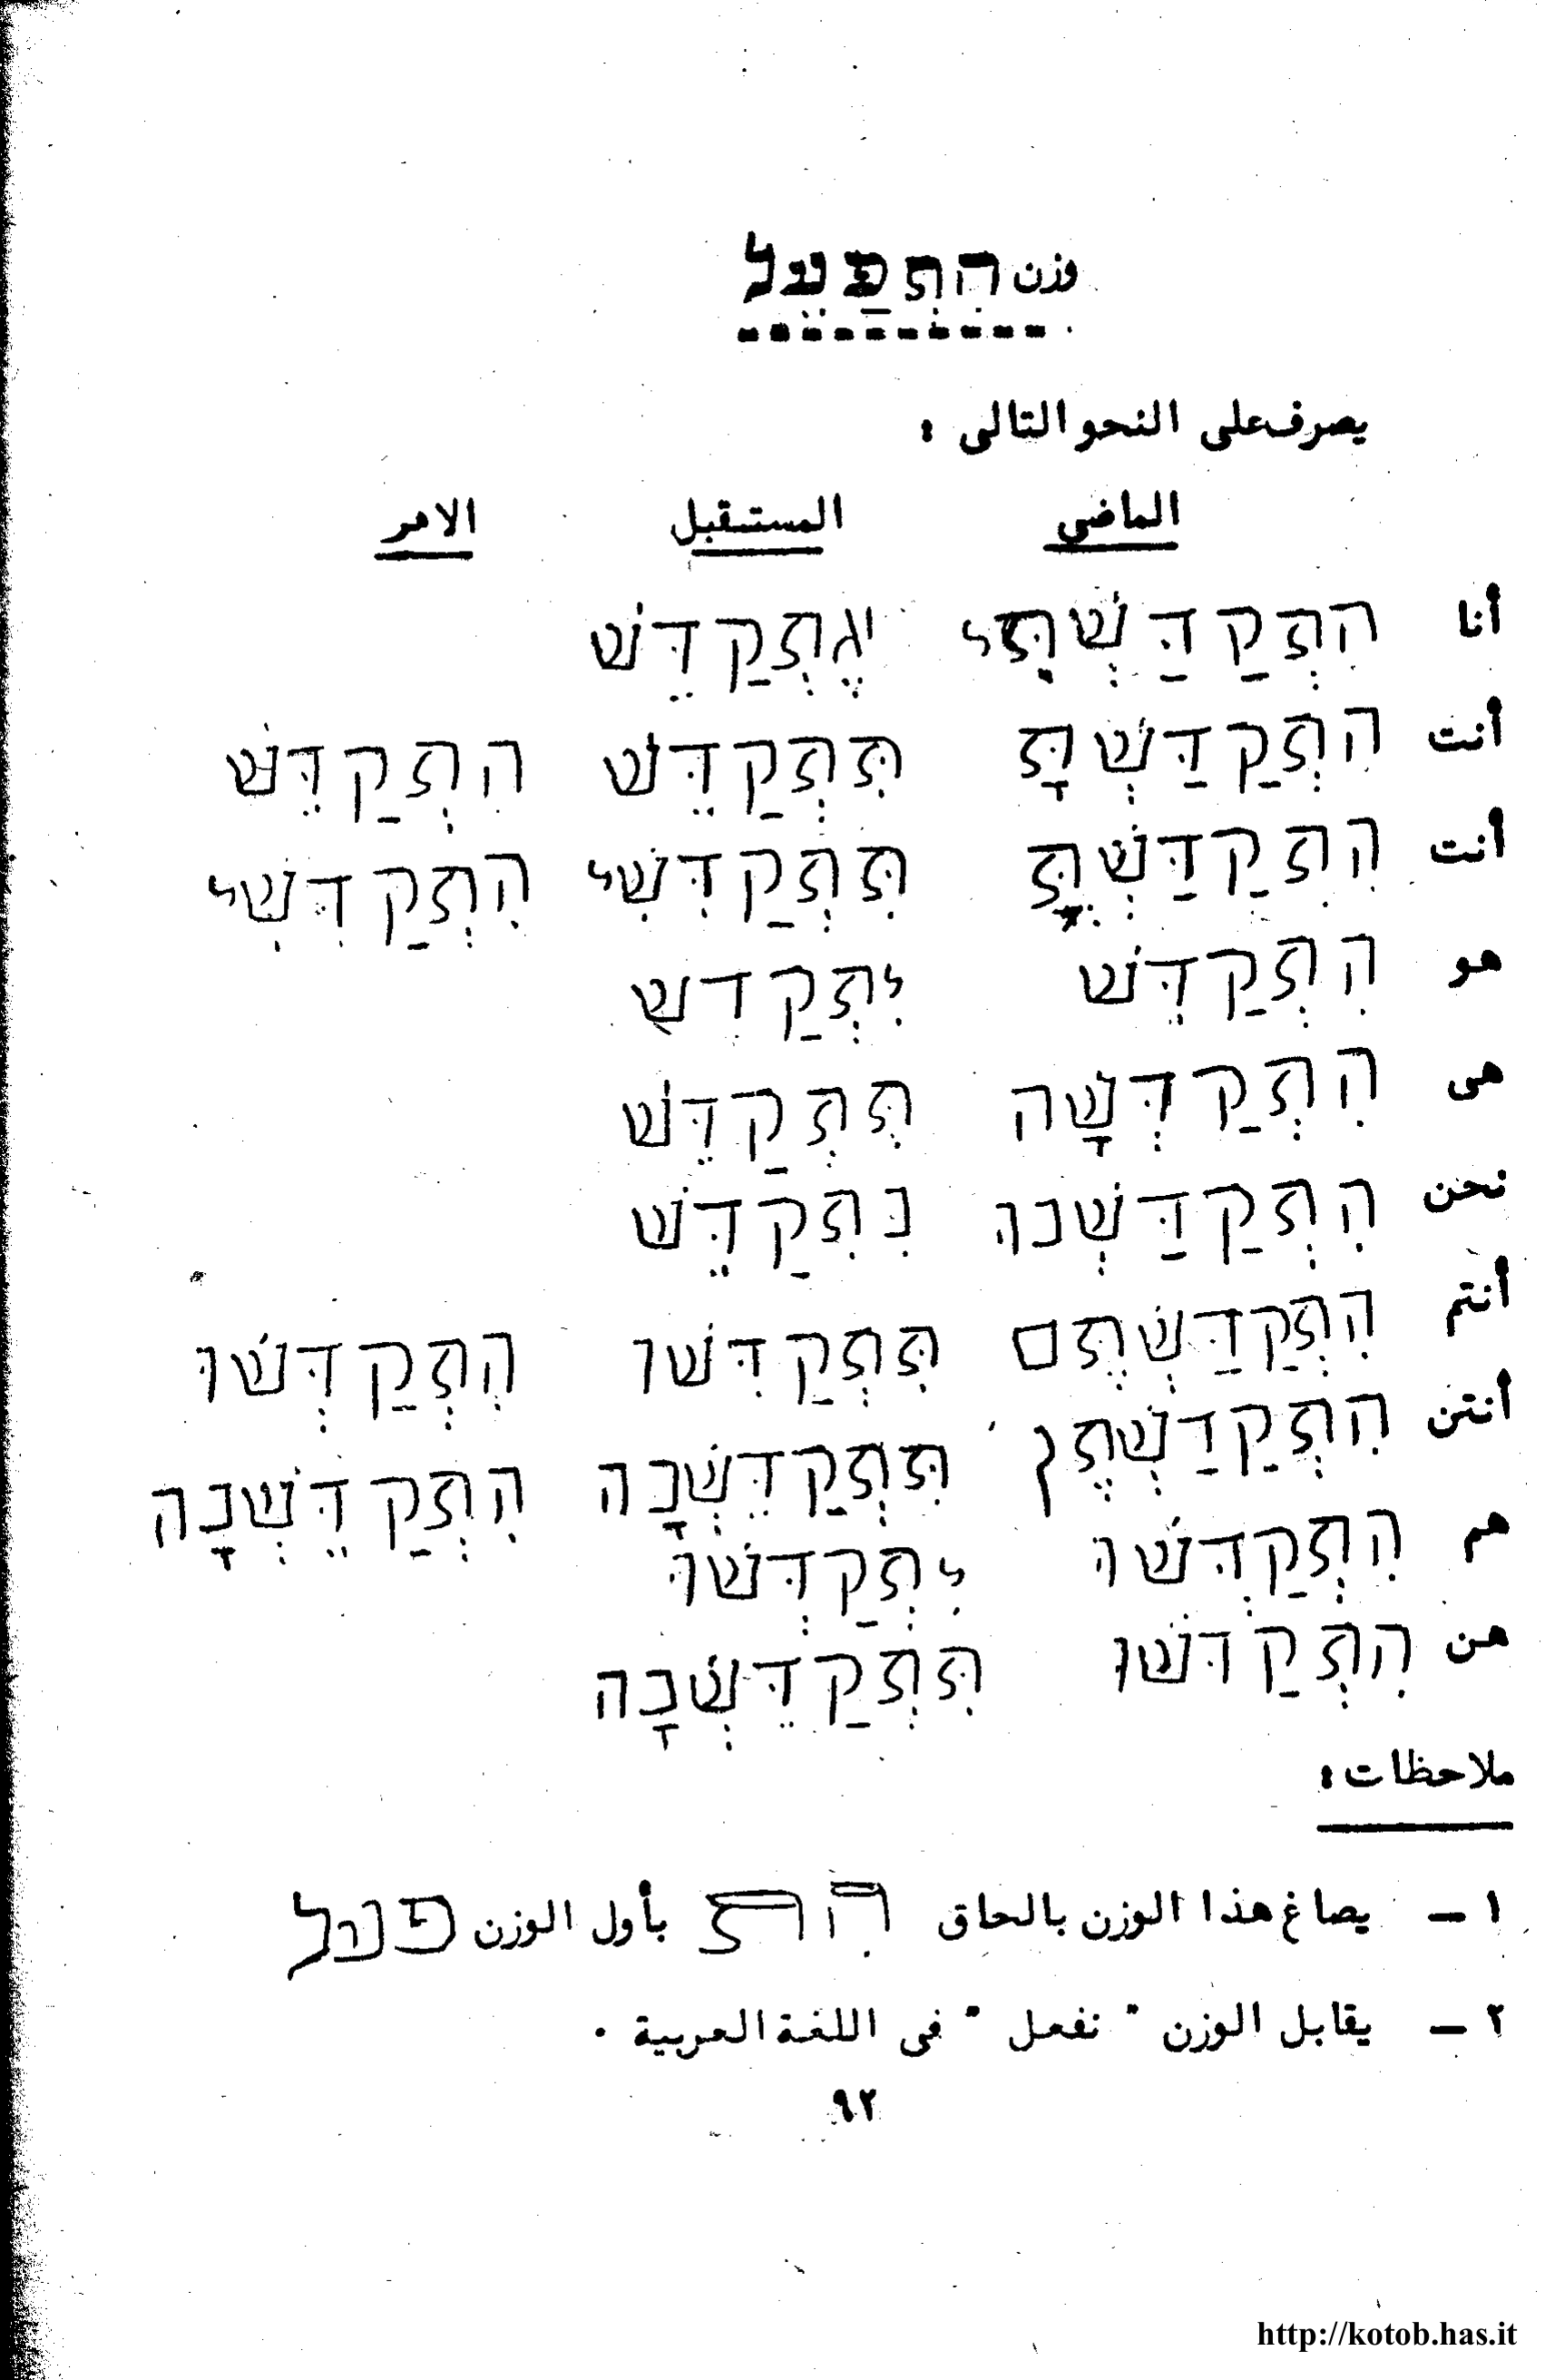 وزن הִתְפַּעֵל
يصرف على النحو التالى :
الماضى المستقبل الامر
أنا הִתְקַדַּשְׁתִּי אֶתְקַדֵּשׁ
أنت הִתְקַדַּשְׁתָּ תִּתְקַדֵּשׁ הִתְקַדֵּשׁ
أنت הִתְקַדַּשְׁתְּ תִּתְקַדְּשִׁי הִתְקַדְּשִׁי
هو הִתְקַדֵּשׁ יִתְקַדֵּשׁ
هى הִתְקַדְּשָׁה תִּתְקַדֵּשׁ
نحن הִתְקַדַּשְׁנוּ נִתְקַדֵּשׁ
أنتم הִתְקַדַּשְׁתֶּם תִּתְקַדְּשׁוּ הִתְקַדְּשׁוּ
أنتن הִתְקַדַּשְׁתֶּן תִּתְקַדֵּשְׁנָה הִתְקַדֵּשְׁנָה
هم הִתְקַדְּשׁוּ יִתְקַדְּשׁוּ
هن הִתְקַדְּשׁוּ תִּתְקַדֵּשְׁנָה
ملاحظات :
١ – يصاغ هذا الوزن بالحاق הִת بأول الوزن
٢ – يقابل الوزن " نفعل " فى اللغة العربية .
٩٢
http://kotob.has.it